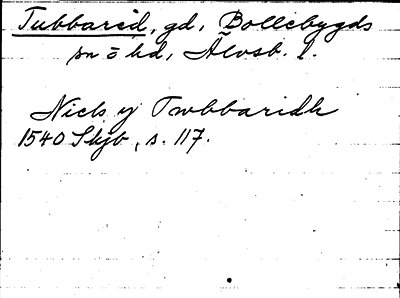 Tubbared, gd, Bollebygds
sn o hd, Älvsb. l.
Niels y Twbbaridh
1540 Skjb, s. 117.